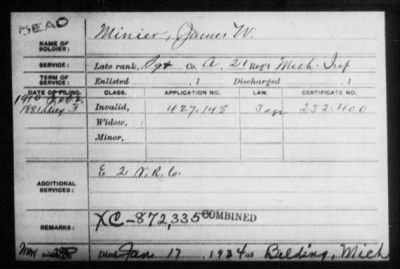 DEAD
NAME OF SOLDIER: Minier, James W.
SERVICE: Late rank, Sgt Co. A, 21 Reg't Mich. Inf
TERM OF SERVICE: Enlisted , 1 Discharged , 1
DATE OF FILING. CLASS. APPLICATION NO. LAW. CERTIFICATE NO.
1881 Aug 3 Invalid, 427.148 252.400
Widow,
Minor,
ADDITIONAL SERVICES: E 2 V.R.C.
REMARKS: XC-872,335 COMBINED
Died Jan 17, 1934 at Belding, Mich